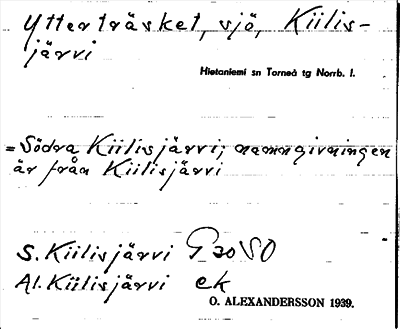 Ytterträsket, sjö, Kiilis-
järvi
Hietaniemi sn Torneå tg Norrb. l.
= Södra Kiilisjärvi; namngivningen
är från Kiilisjärvi
S. Kiilisjärvi G 30 SO
Al. Kiilisjärvi ek
O. ALEXANDERSSON 1939.